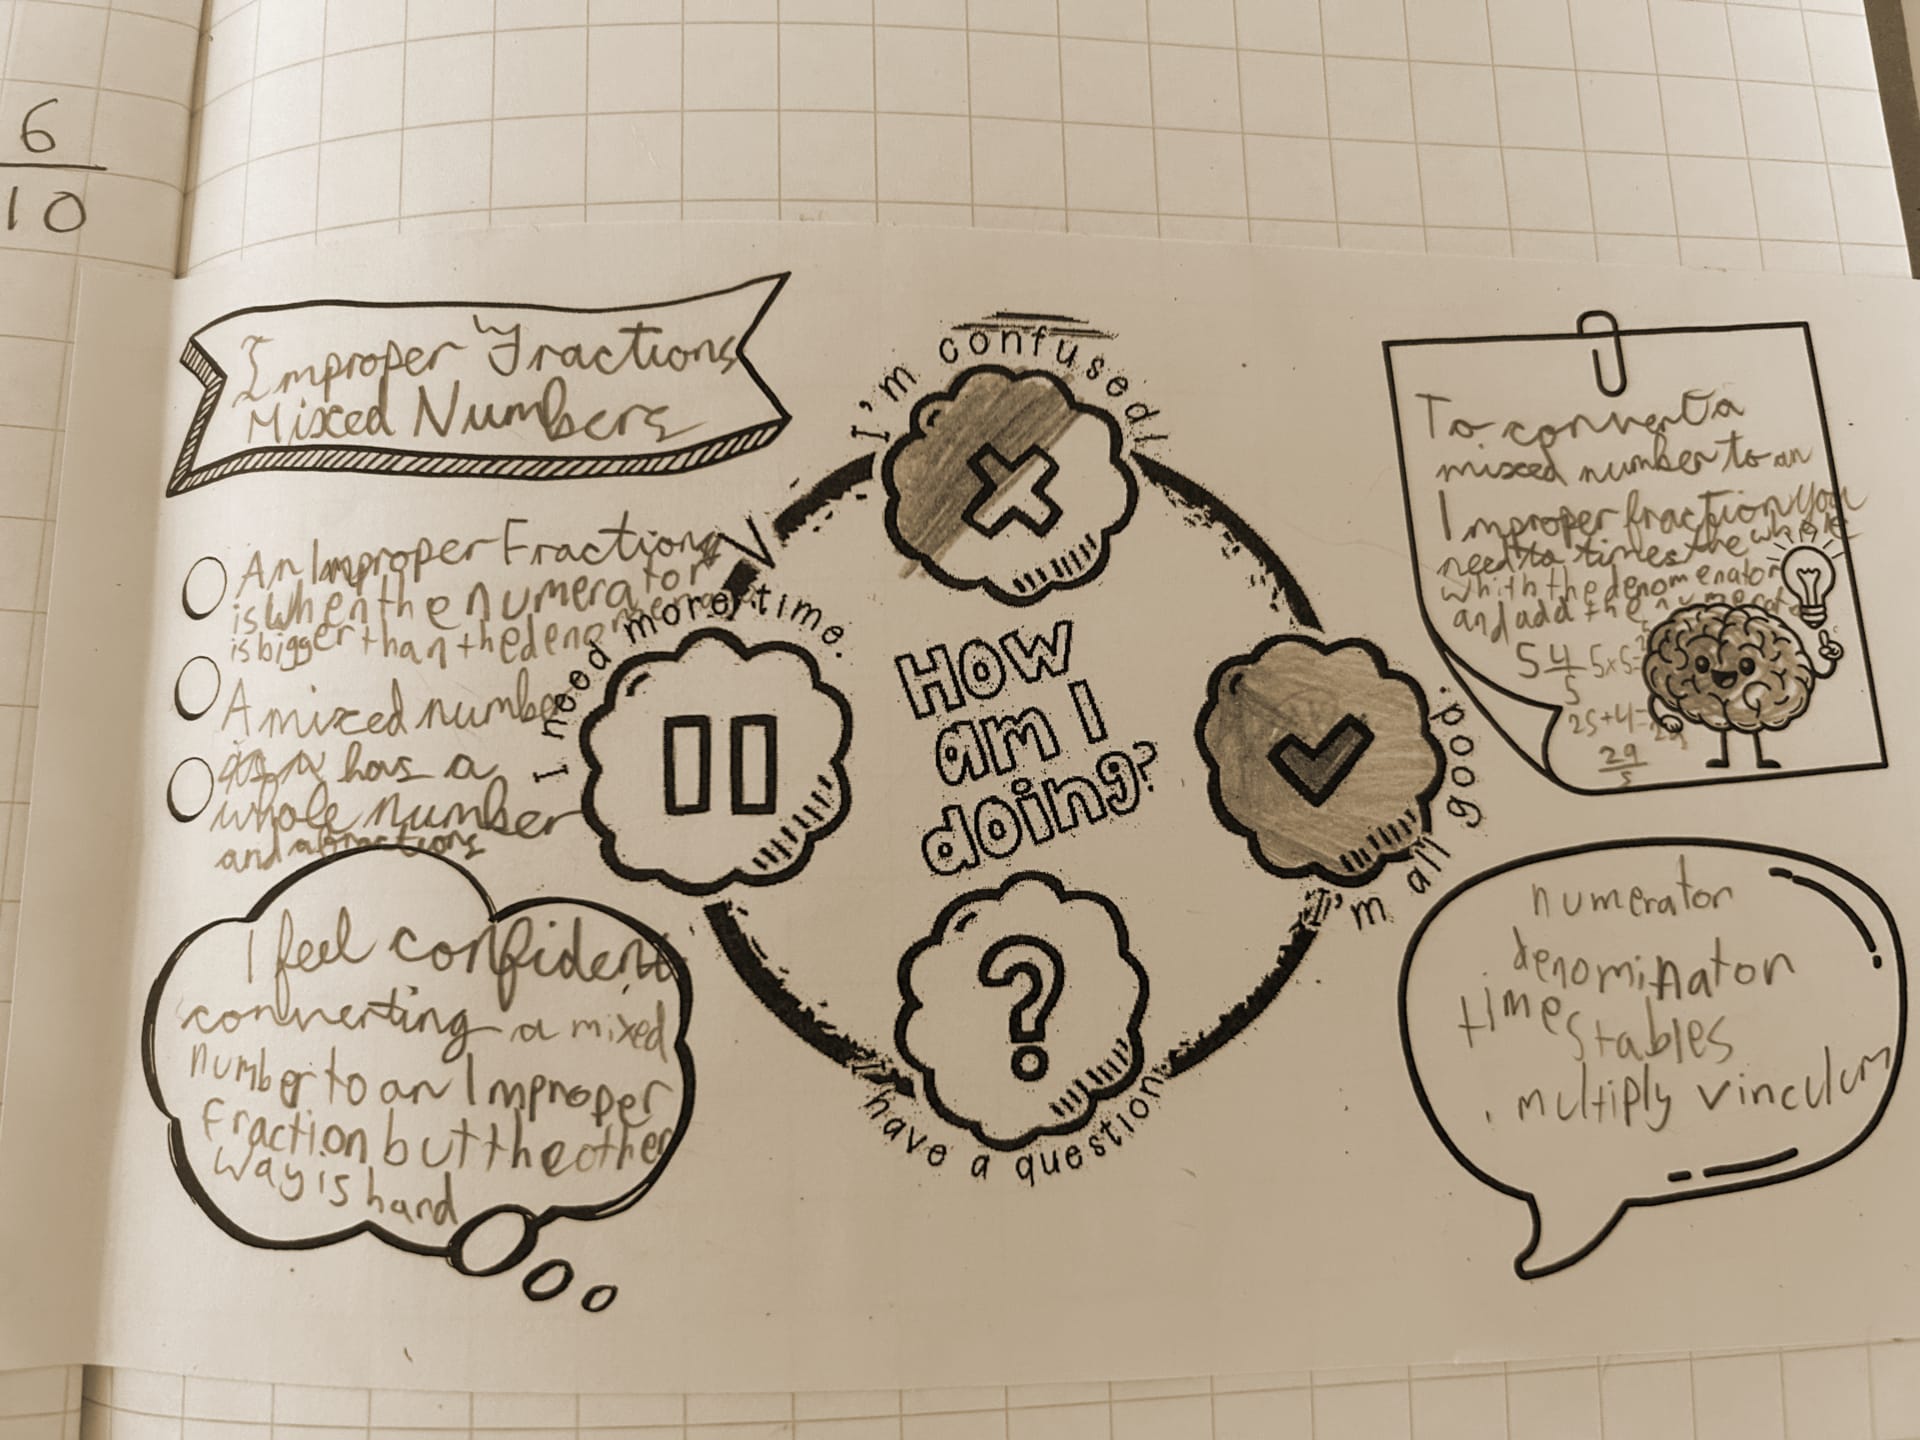 6
10
Improper Fractions
Mixed Numbers
An Improper Fractions
is when the numerator
is bigger than the
A mixed number
has a
whole number
and a fractions
I feel confident
converting a mixed
number to an Improper
fraction but the other
way is hard
I'm confused!
I need more time.
How
am I
doing?
I'm all good.
I have a question.
To convert a
mixed number to an
Improper fraction you
need to times the whole
whith the denomenator
and add the
5 4/5 5x5=
25+4=29
29
5
numerator
denominaton
times tables
multiply vinculum